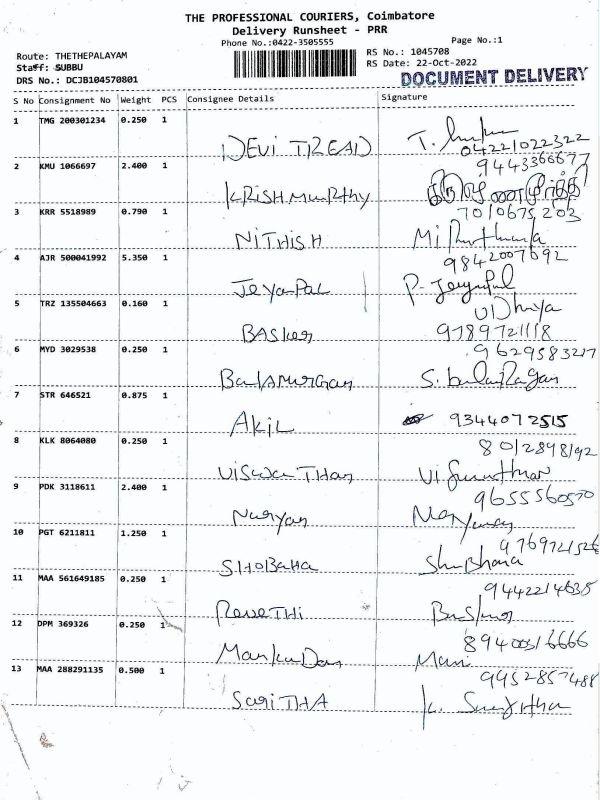 THE PROFESSIONAL COURIERS, Coimbatore
Delivery Runsheet - PRR
Phone No.:0422-3505555
Page No.:1
Route: THETHEPALAYAM
RS No.: 1045708
Staff: SUBBU
RS Date: 22-Oct-2022
DRS No.: DCJB104570801
DOCUMENT DELIVERY
S No Consignment No Weight PCS Consignee Details Signature
1 TMG 200301234 0.250 1
DEVI TREAD 04221022322
2 KMU 1066697 2.400 1 9443366677
KRISHMURTHY
3 KRR 5518989 0.790 1 7010675203
NITHISH
4 AJR 500041992 5.350 1 9842007692
JeyaPaL P. Jeypul
5 TRZ 135504663 0.160 1 Vidhya
BASker 9789721118
6 MYD 3029538 0.250 1 9629583217
BaLAMURGan S. balaRagan
7 STR 646521 0.875 1
AKiL 9344072515
8 KLK 8064080 0.250 1 8012898192
ViSwaTHan
9 PDK 3118611 2.400 1 9655560570
Naryan
10 PGT 6211811 1.250 1 9769721526
SHOBaHa Shubhana
11 MAA 561649185 0.250 1 9442214635
ReveTHi
12 DPM 369326 0.250 1 8940036666
MankanDan Mani
13 MAA 288291135 0.500 1 9952857488
SariTHA